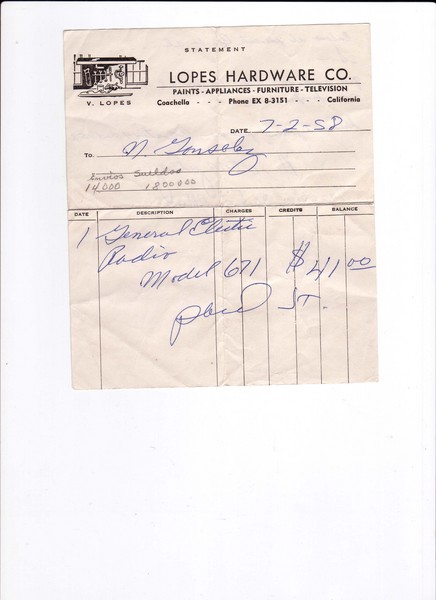 STATEMENT
LOPES HARDWARE CO.
PAINTS - APPLIANCES - FURNITURE - TELEVISION
V. LOPES
Coachella - - - Phone EX 8-3151 - - - California
DATE 7-2-58
To N. Gonzalez
Envios Sueldos
14,000 1800000
DATE DESCRIPTION CHARGES CREDITS BALANCE
1 General Electric
Radio
Model 671 $41 00
Paid JT.